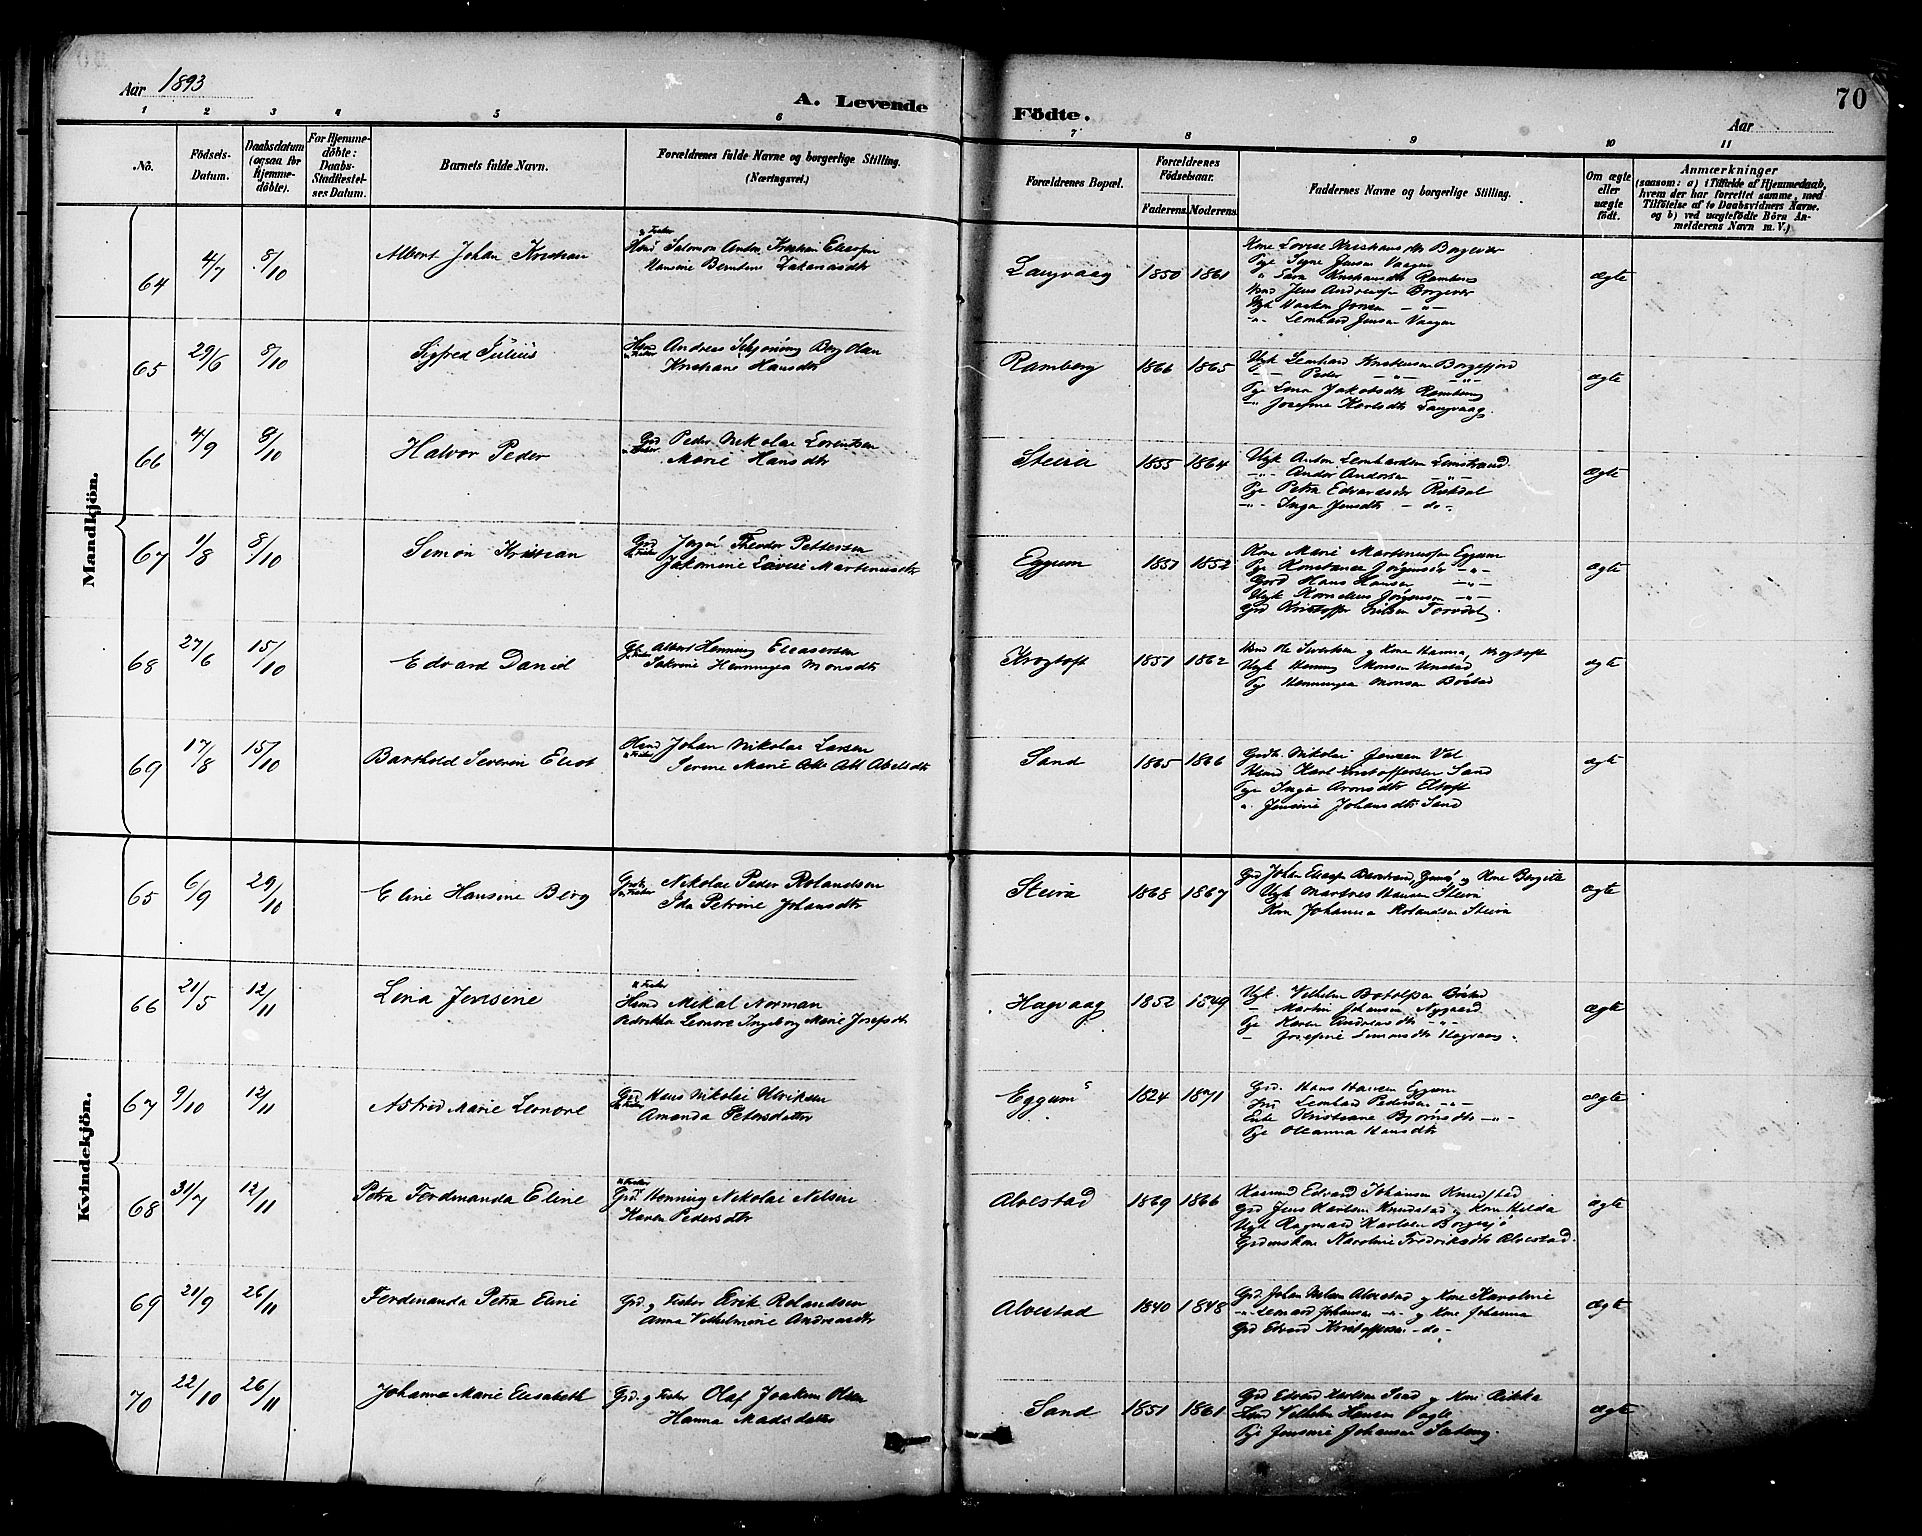 Aar 1893
A. Levende
Födte.
70
Aar
1 2 3 4 5 6 7 8 9 10 11
No.
Födsels-
Datum.
Daabsdatum
(ogsaa for
Hjemme-
döbte).
For Hjemme-
döbte:
Daabs-
Stadfæstel-
ses Datum.
Barnets fulde Navn.
Forældrenes fulde Navne og borgerlige Stilling.
(Næringsvei.)
Forældrenes Bopæl.
Forældrenes
Födselsaar.
Faderens. Moderens.
Faddernes Navne og borgerlige Stilling.
Om ægte
eller
uægte
födt.
Anmærkninger
(saasom: a) i Tilfælde af Hjemmedaab,
hvem der har forrettet samme, med
Tilföielse af to Daabsvidners Navne.
og b) ved uægtefödte Börn An-
melderens Navn m. V.)
Mandkjön.
64 4/7 8/10 Albert Johan Kristian
Salomon Andor Kristian
Hansine Berntine
Langvaag 1850 1861
Kone Lovise Kristiansdtr Borgevær
Pige Signe Jensen Vaagen
Sara Kristiansdtr Ramberg
Jens Andreassen Borgevær
Leonhard Jensen Vaagen
ægte
65 29/6 8/10 Sigfred Julius
Andreas Schjøning Berg Olsen
Kristiane Hansdtr
Ramberg 1866 1865
Ugk Leonhard Kristiansen Borgefjord
Peder
Pge Lena Jakobsdtr Ramberg
Josefine Karlsdtr Langvaag
ægte
66 4/9 8/10 Halvor Peder
Grd Peder Nikolai Lorentsen
Marie Hansdtr
Steira 1855 1864
Ugk Anton Leonhardsen Limstrand
Andor Andersen
Pge Petra Edvardsdtr
Inga Jensdtr - do -
ægte
67 1/8 8/10 Simon Kristian
Grd Theodor Pettersen
Jakomine Lovise Martinusdtr
Eggum 1852
Kone Marie Eggum
Pge Konstance Jørgensdtr
Gbrd Hans Hansen
Ugk Kornelius Jørgensen
Grd Kristoffer Nilsen Torvdal
ægte
68 27/6 15/10 Edvard Daniel
Albert Henning Eleasersen
Henningea Monsdtr
Krogtoft 1851 1862
Kone Hanna, Krogtoft
Ugk Henning Monsen Unstad
Pge Henningea Monsen Böstad
ægte
69 17/8 15/10 Barthold Severin Eliot
Johan Nikolai Larsen
Serine Marie Abelsdtr
Sand 1865 1866
Nikolai Jensen Vol
Karl Kristoffersen Sand
Pge Inga Aronsdtr Eltoft
Jensine Johansdtr Sand
ægte
Kvindekjön.
65 6/9 29/10 Eline Hansine Berg
Nikolai Peder Rolandsen
Ida Petrine Johansdtr
Steira 1868 1867
Grd Johan og Kone Bergitte
Ugk Martines Hansen Steira
Kone Johanna Rolandsen Steira
ægte
66 21/5 12/11 Lina Jensine
Mikal Norman
Leonore Ingeborg Marie Josefsdtr
Hagvaag 1852 1849
Ugk. Vilhelm Botolfsen
Martin Johansen Nygaard
Pge Karen Andreasdtr
Josefine Simonsdtr Hagvaag
ægte
67 9/10 12/11 Astrid Marie Leonore
Grd Hans Nikolai Ulriksen
Amanda Petersdatter
Eggum 1824 1871
Grd. Hans Hansen Eggum
Leonhard Pedersen
Enke Kristiane Bjørnsdtr
Pge Oleanna Hansdtr
ægte
68 31/7 12/11 Petra Ferdinanda Eline
Grd. Henning Nikolai Nilsen
Karen Pedersdtr
Alvestad 1869 1866
Edvard Johansen Knudstad
Grd Jens Karlsen Knudstad og Kone Hilda
Ugk Ragnvard Karlsen
Grdmskone Karoline Fredriksdtr Alvestad.
ægte
69 21/9 26/11 Ferdinanda Petra Eline
Grd. og Fisker Eirik Rolandsen
Anna Vilhelmine Andreasdtr
Alvestad 1840 1848
Grd Johan Nilsen Alvestad og Kone Karoline
Johansen og Kone Johanna
Grd Edvard Kristoffersen - do -
ægte
70 22/10 26/11 Johanna Marie Elisabeth
Grd. og Fisker Olaf Joakim Olsen
Hanna Madsdatter
Sand 1851 1861
Grd Edvard Karlsen Sand og Kone Rikka
Vilhelm Hansen
Pge Jensine Johansen
ægte